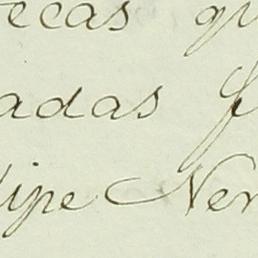 ecas qu
adas f
lipe Ner